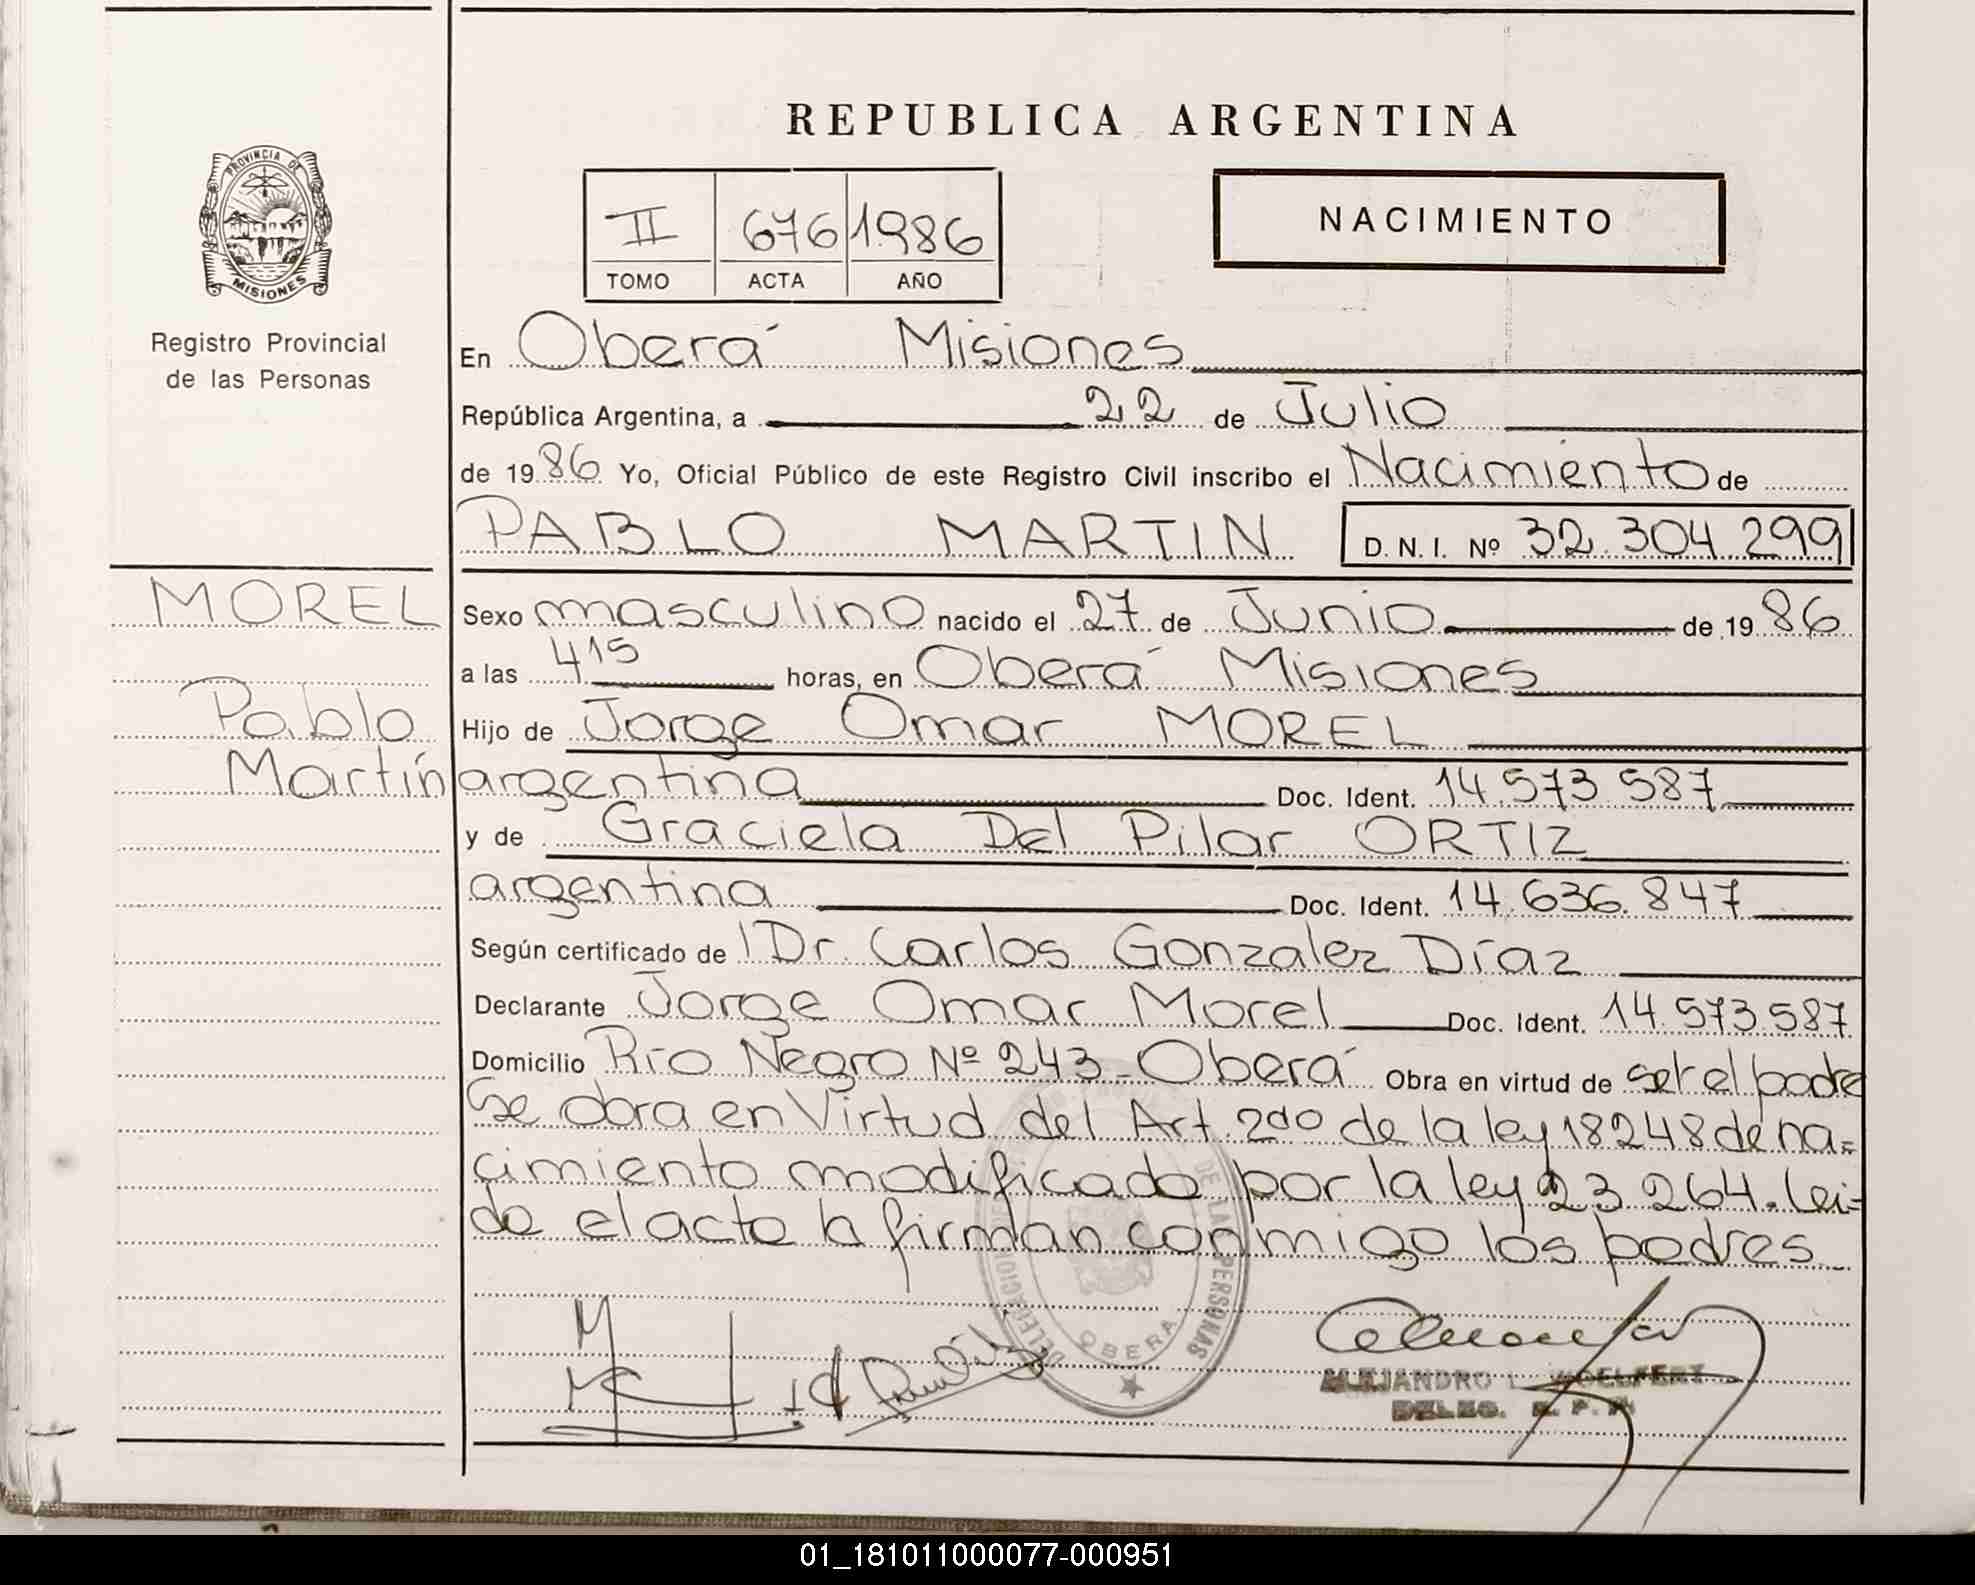 REPUBLICA ARGENTINA
PROVINCIA DE
MISIONES
Registro Provincial
de las Personas
II 676 1986
TOMO ACTA AÑO
NACIMIENTO
En Oberá Misiones
República Argentina, a 22 de Julio
de 1986 Yo, Oficial Público de este Registro Civil inscribo el Nacimiento de
PABLO MARTIN D.N.I. Nº 32.304.299
MOREL
Pablo
Martín
Sexo masculino nacido el 27 de Junio de 1986
a las 415 horas, en Oberá Misiones
Hijo de Jorge Omar MOREL
argentina Doc. Ident. 14.573 587
y de Graciela Del Pilar ORTIZ
argentina Doc. Ident. 14.636.847
Según certificado de Dr. Carlos Gonzalez Díaz
Declarante Jorge Omar Morel Doc. Ident. 14.573.587
Domicilio Río Negro Nº 243-Oberá Obra en virtud de ser el padre
Se obra en Virtud del Art. 2do de la ley 18248 de na=
cimiento modificado por la ley 23 264. Lei=
do el acto la firman conmigo los padres
DELEGACION DE LAS PERSONAS
OBERA
ALEJANDRO L. WOELFERT
DELEG. R. P. P.
01_181011000077-000951